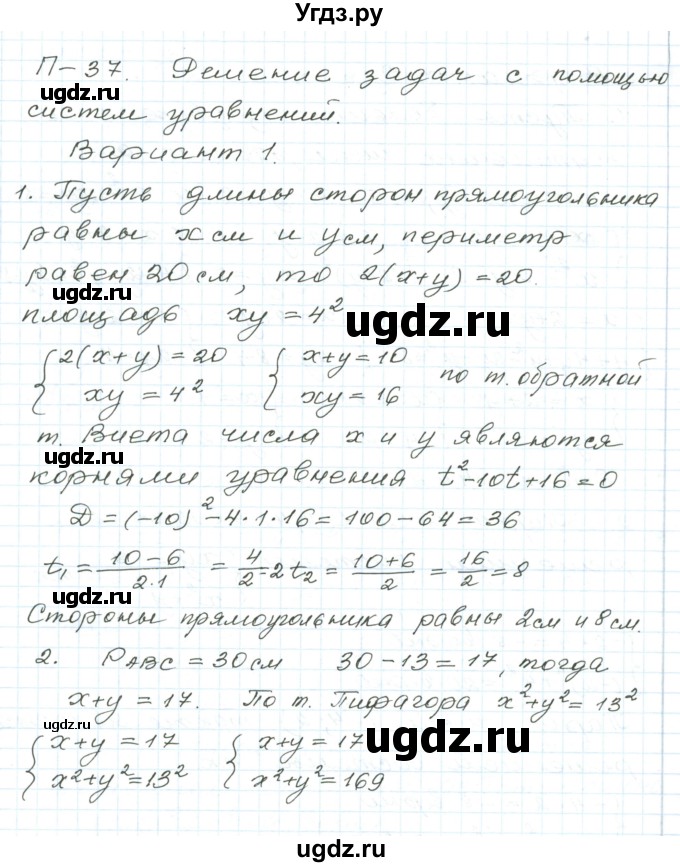 Угдз.ру
П-37. Решение задач с помощью
ugdz.ru
систем уравнений.
Вариант 1.
1. Пусть длины сторон прямоугольника
равны x см и y см, периметр
равен 20 см, то 2(x+y) = 20.
ugdz.ru
площадь xy = 4²
ugdz.ru
{2(x+y) = 20 {x+y = 10 по т. обратной
xy = 4² xy = 16
т. Виета числа x и y являются
ugdz.ru
корнями уравнения t²-10t+16=0
D = (-10)²-4·1·16 = 100-64 = 36
t₁ = (10-6)/(2·1) = 4/2 = 2 t₂ = (10+6)/2 = 16/2 = 8
ugdz.ru
Стороны прямоугольника равны 2см и 8см.
2. P ABC = 30 см 30-13 = 17, тогда
x+y = 17. По т. Пифагора x²+y² = 13²
ugdz.ru
{x+y = 17 {x+y = 17
ugdz.ru
x²+y²=13² x²+y²=169
ugdz.ru